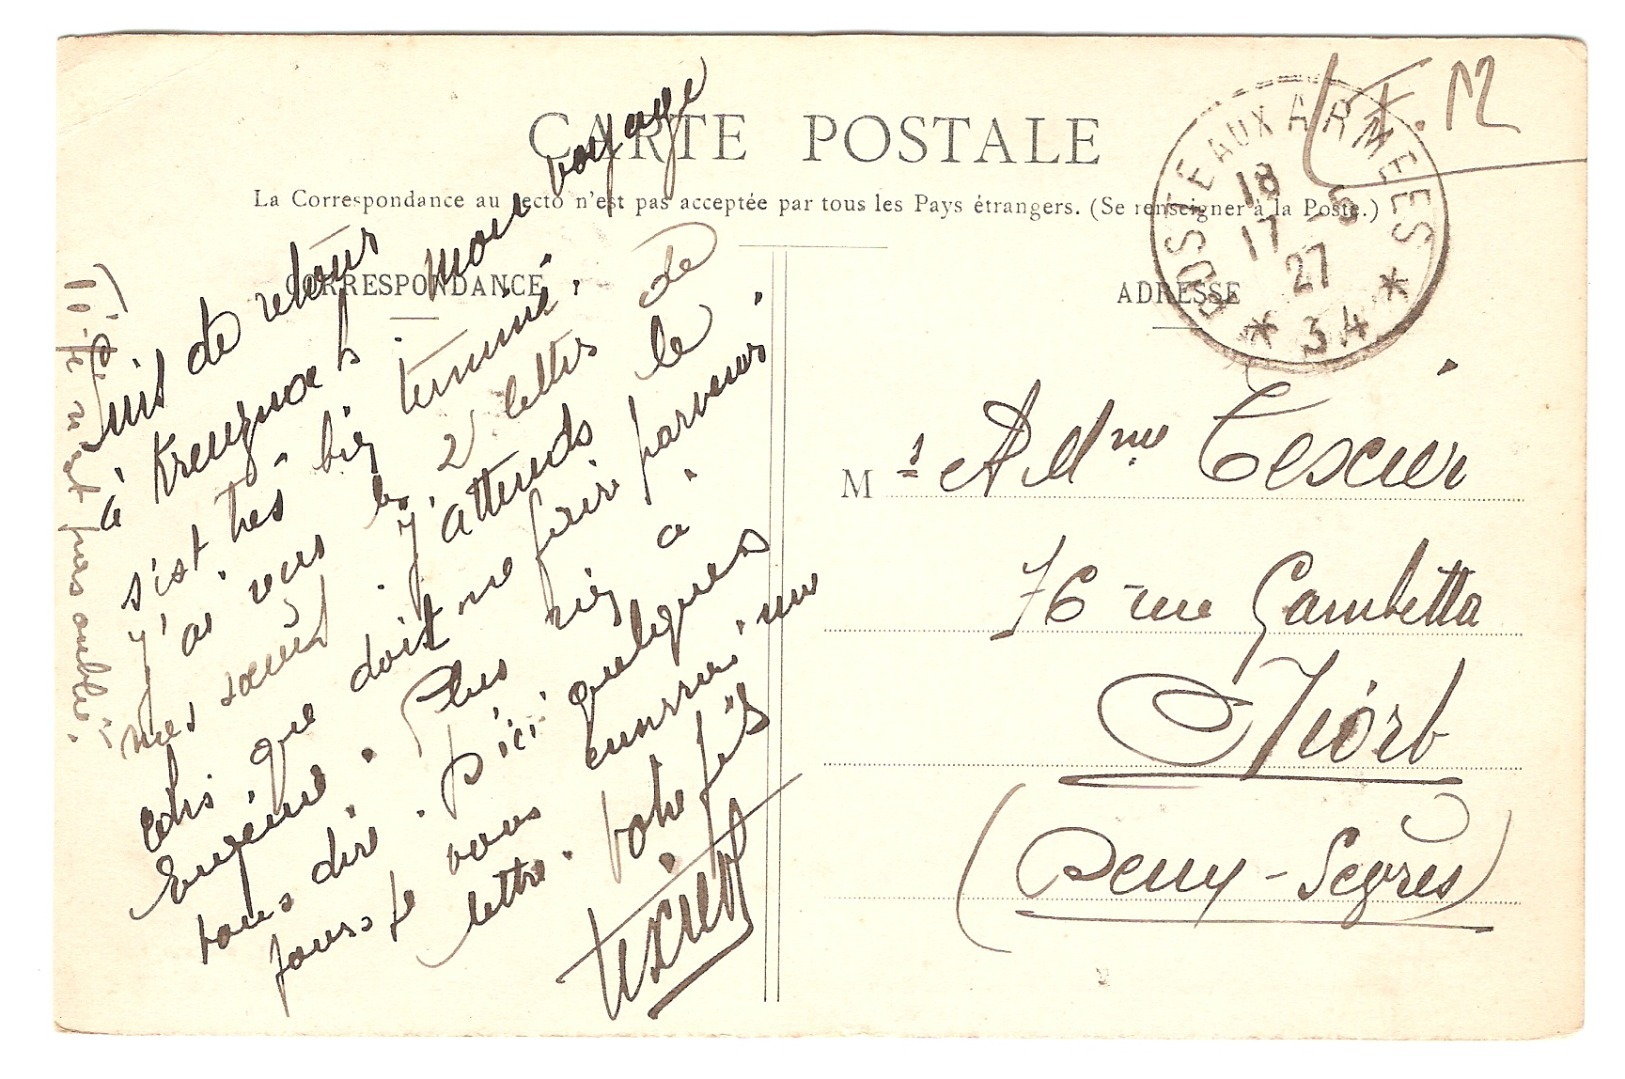 CARTE POSTALE
La Correspondance au recto n'est pas acceptée par tous les Pays étrangers. (Se renseigner à la Poste.)
CORRESPONDANCE
ADRESSE
POSTE AUX ARMEES
18
17 - 5
27
* 34 *
F. M
suis de retour
à Kreuznach. mon voyage
s'est très bien terminé.
J'ai reçu les 2 lettres de
mes sœurs. J'attends le
colis que doit me faire parvenir
Eugénie. Plus rien à
vous dire. D'ici quelques
jours je vous enverrai une
lettre. Votre fils
Texier
M r & Mme Texier
76 rue Gambetta
Niort
(Deux-Sèvres)